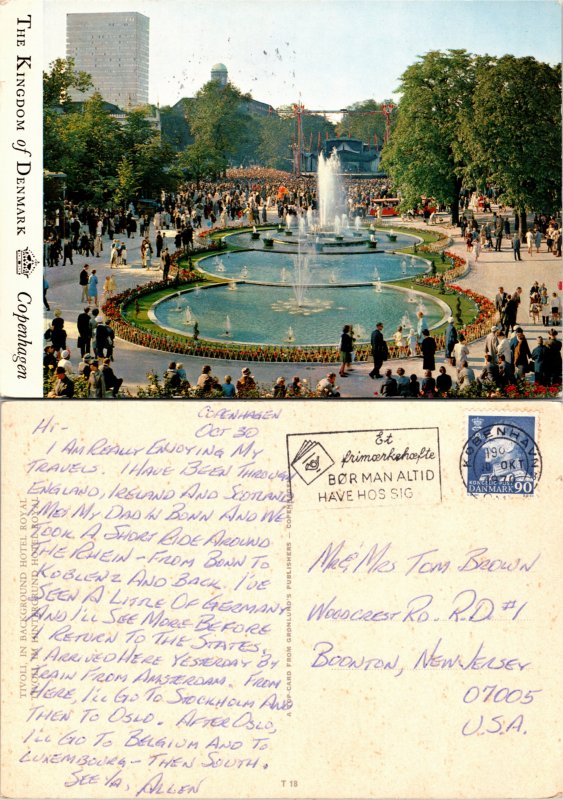 THE KINGDOM of DENMARK Copenhagen
COPENHAGEN
OCT 30
HI-
I AM REALLY ENJOYING MY
TRAVELS. I HAVE BEEN THROUGH
ENGLAND, IRELAND AND SCOTLAND
I MET MY DAD IN BONN AND WE
TOOK A SHORT RIDE AROUND
THE RHEIN - FROM BONN TO
KOBLENZ AND BACK. I'VE
SEEN A LITTLE OF GERMANY
AND I'LL SEE MORE BEFORE
I RETURN TO THE STATES.
I ARRIVED HERE YESTERDAY BY
TRAIN FROM AMSTERDAM. FROM
HERE, I'LL GO TO STOCKHOLM AND
THEN TO OSLO. AFTER OSLO,
I'LL GO TO BELGIUM AND TO
LUXEMBOURG - THEN SOUTH.
SEE YA, ALLEN
TIVOLI IN BACKGROUND HOTEL ROYAL
TIVOLI IM HINTERGRUND HOTEL ROYAL
A TOP-CARD FROM GRØNLUND'S PUBLISHERS - COPENHAGEN
T 18
Et
frimærkehæfte
BØR MAN ALTID
HAVE HOS SIG
KØBENHAVN
OKT
1970
DANMARK 90
MR & MRS TOM BROWN
WOODCREST RD. R.D. #1
BOONTON, NEW JERSEY
07005
U.S.A.